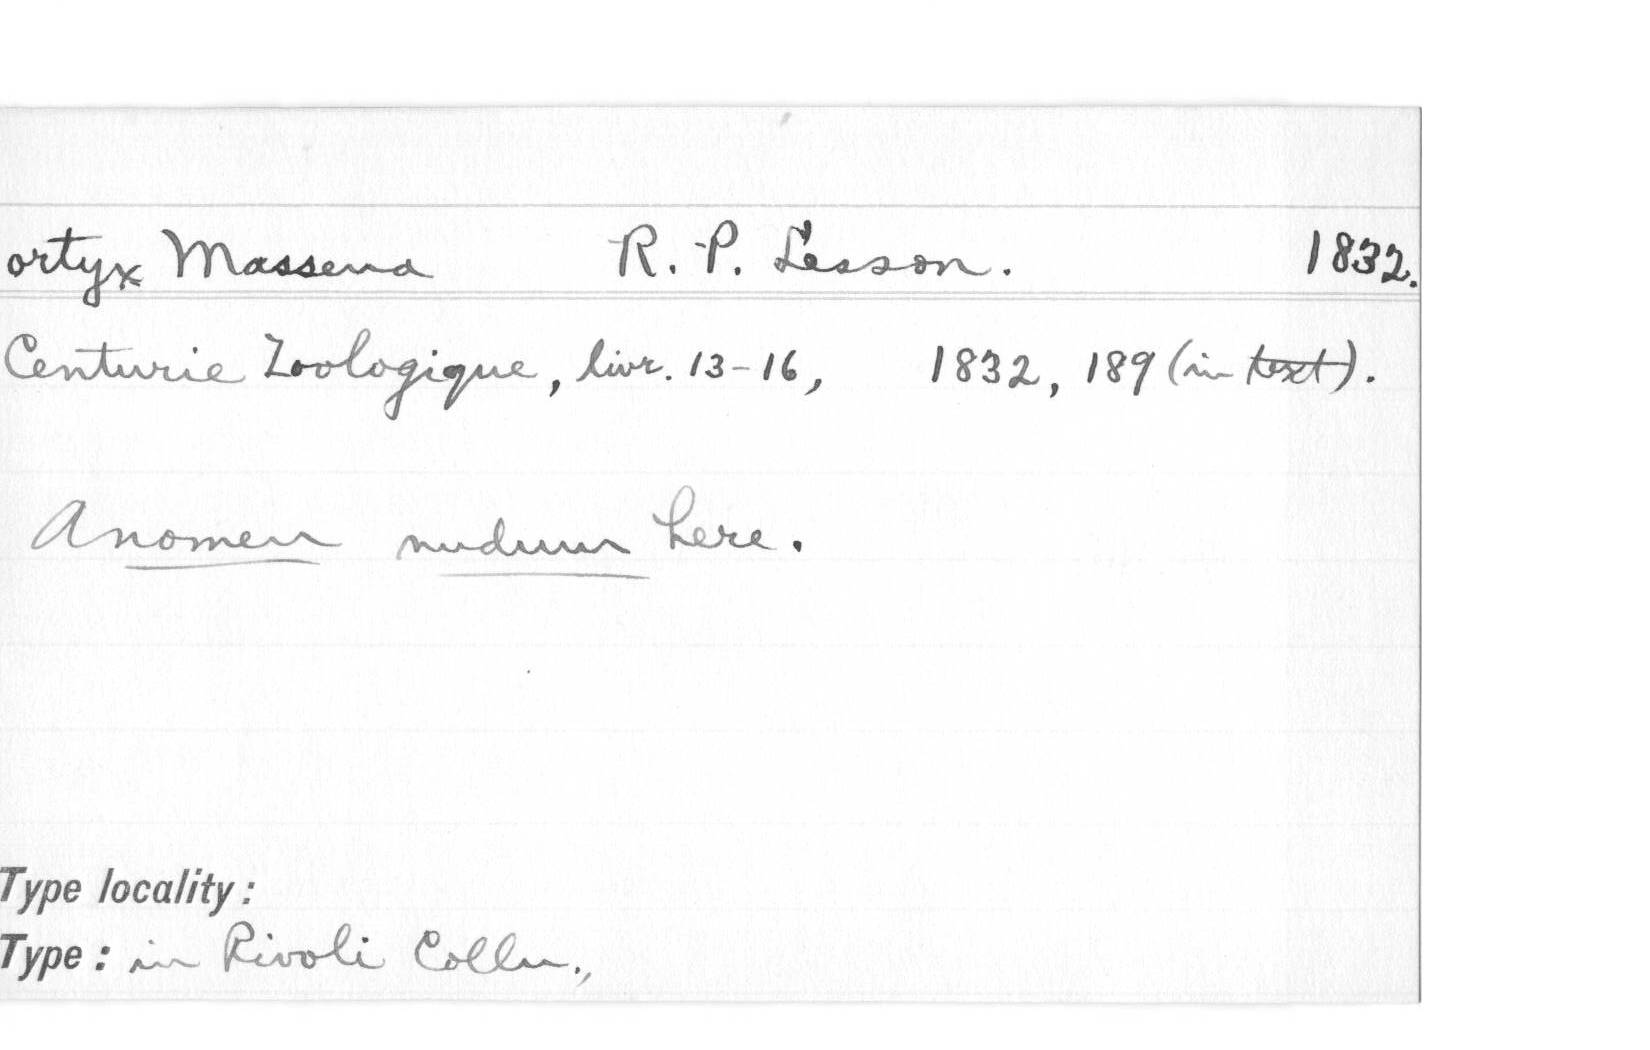 ortyx Massena R. P. Lesson. 1832.
Centurie Zoologique, livr. 13-16, 1832, 189 (in text).
A nomen nudum here.
Type locality:
Type: in Rivoli Colln.,